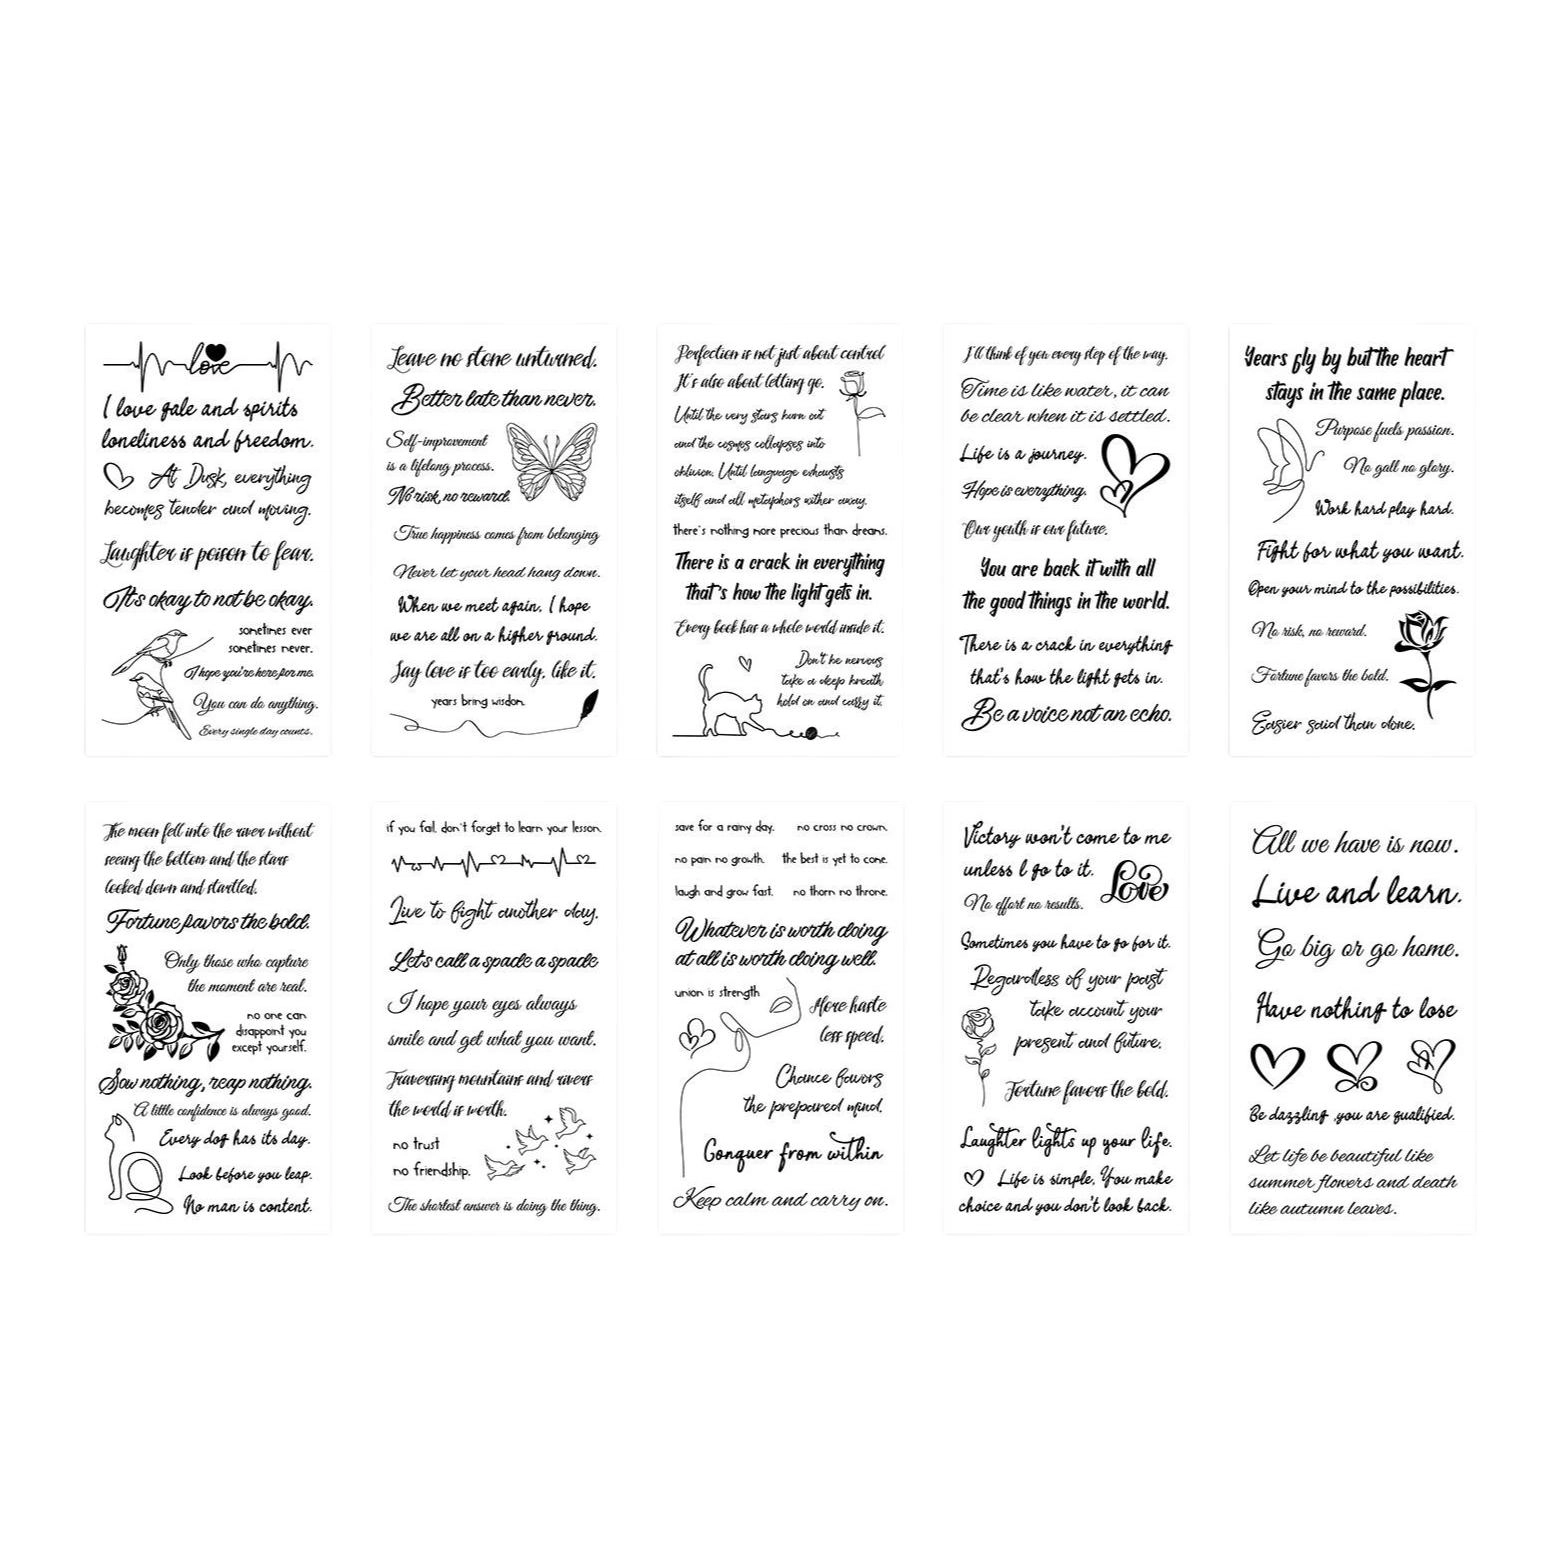 love
I love gale and spirits
loneliness and freedom.
At Dusk, everything
becomes tender and moving.
Laughter is poison to fear.
It's okay to not be okay.
sometimes ever
sometimes never.
I hope you're here for me.
You can do anything.
Every single day counts.
Leave no stone unturned.
Better late than never.
Self-improvement
is a lifelong process.
No risk, no reward.
True happiness comes from belonging
Never let your head hang down.
When we meet again, I hope
we are all on a higher ground.
Say love is too early, like it.
years bring wisdon.
Perfection is not just about control
It's also about letting go.
Until the very stars burn out
and the cosmos collapses into
oblivion. Until language exhausts
itself and all metaphors wither away.
there's nothing more precious than dreams.
There is a crack in everything
that's how the light gets in.
Every book has a whole world inside it.
Don't be nervous
take a deep breath
hold on and carry it.
I'll think of you every step of the way.
Time is like water, it can
be clear when it is settled.
Life is a journey.
Hope is everything.
Our youth is our future.
You are back it with all
the good things in the world.
There is a crack in everything
that's how the light gets in.
Be a voice not an echo.
Years fly by but the heart
stays in the same place.
Purpose fuels passion.
No gall no glory.
Work hard play hard.
Fight for what you want.
Open your mind to the possibilities.
No risk, no reward.
Fortune favors the bold.
Easier said than done.
The moon fell into the river without
seeing the bottom and the stars
looked down and startled.
Fortune favors the bold.
Only those who capture
the moment are real.
no one can
disappoint you
except yourself.
Sow nothing, reap nothing.
A little confidence is always good.
Every dog has its day.
Look before you leap.
No man is content.
if you fail, don't forget to learn your lesson.
Live to fight another day.
Let's call a spade a spade
I hope your eyes always
smile and get what you want.
Traversing mountains and rivers
the world is worth.
no trust
no friendship.
The shortest answer is doing the thing.
save for a rainy day. no cross no crown.
no pain no growth. the best is yet to come.
laugh and grow fast. no thorn no throne.
Whatever is worth doing
at all is worth doing well.
union is strength
More haste
less speed.
Chance favors
the prepared mind.
Conquer from within
Keep calm and carry on.
Victory won't come to me
unless l go to it.
Love
No effort no results.
Sometimes you have to go for it.
Regardless of your past
take account your
present and future.
Fortune favors the bold.
Laughter lights up your life.
Life is simple, You make
choice and you don't look back.
All we have is now.
Live and learn.
Go big or go home.
Have nothing to lose
Be dazzling ,you are qualified.
Let life be beautiful like
summer flowers and death
like autumn leaves.